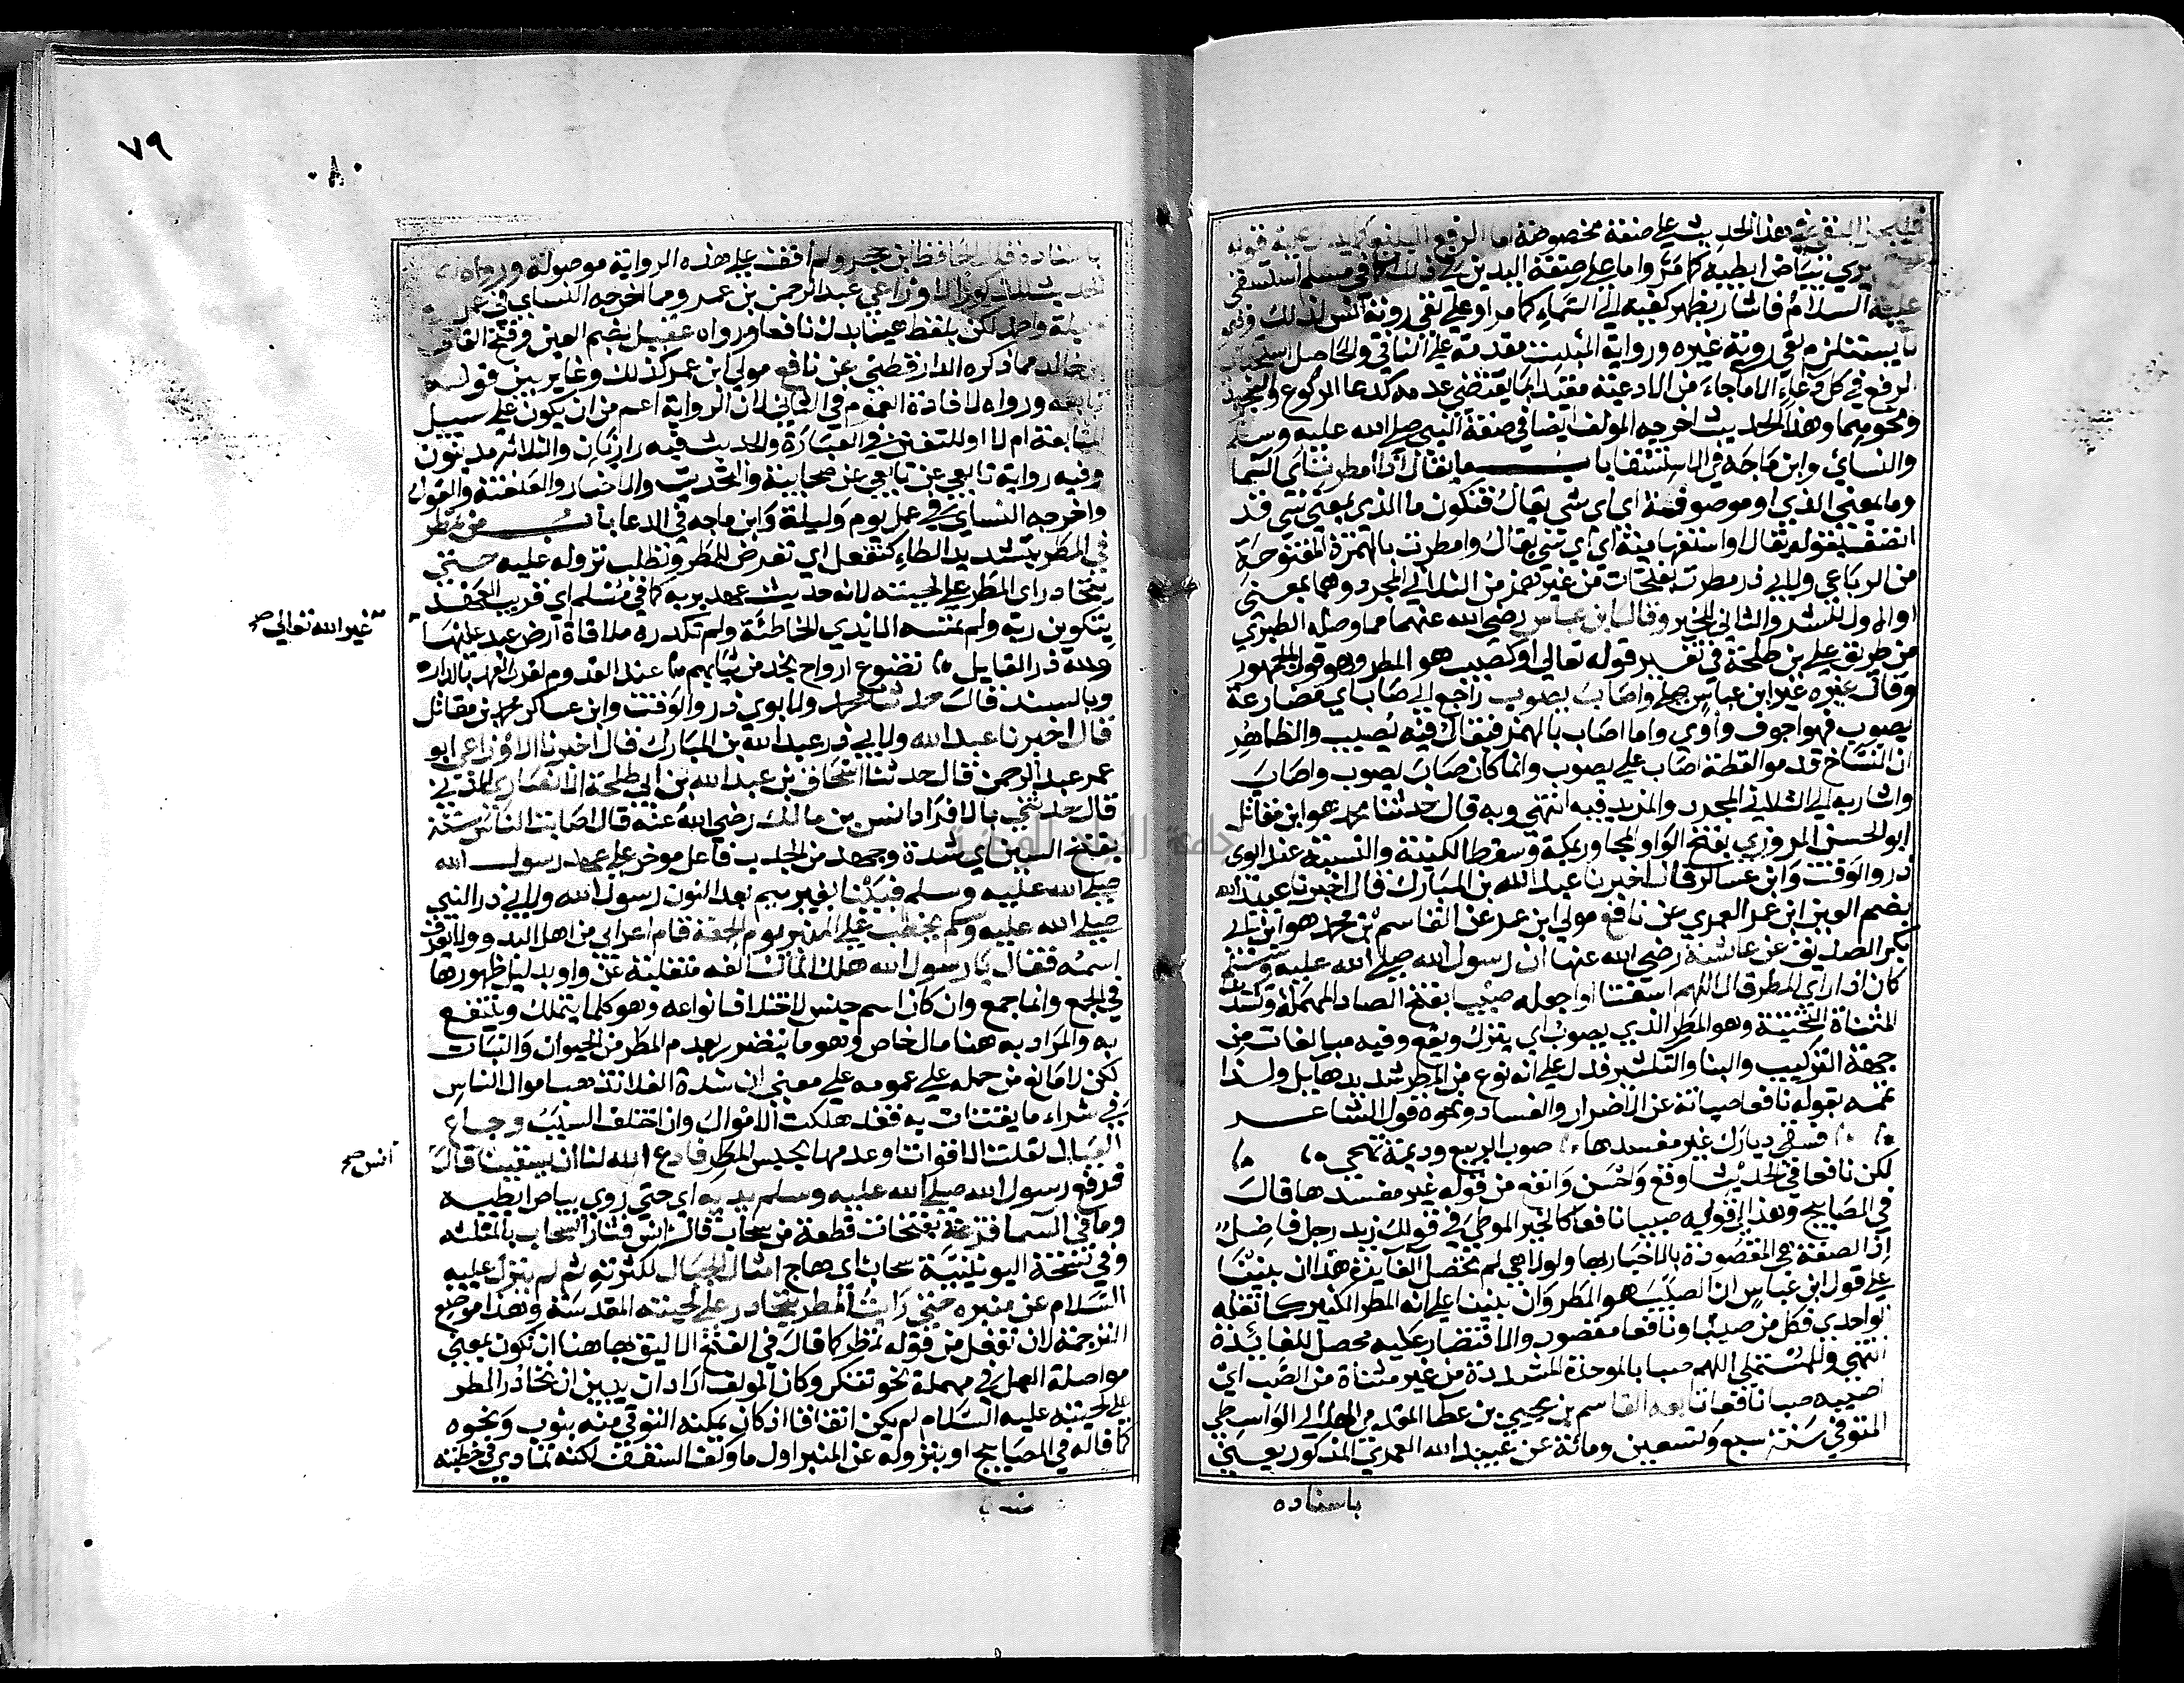 يري بياض ابطيه كما مر واما على صفة اليدين في ذلك كما في مسلم استسقى
عليه السلام فاشار بظهر كفيه الى السماء كما مر او على نفي رؤية انس لذلك وهو
لا يستلزم نفي روية غيره ورواية المثبت مقدمة على النافي والحاصل استحباب
الرفع في كل دعاء الا ما جاء من الادعية مقيدا بما يقتضي عدمه كدعا الركوع والسجود
ونحوهما وهذا الحديث اخرجه المولف ايضا في صفة النبي صلى الله عليه وسلم
والنسائ وابن ماجه في الاستسقا باب ما يقال اذا امطرت اي السما
وما بمعنى الذي او موصوفة اي اي شي يقال فتكون ما الذي بمعنى شي قد
اتصف بقوله يقال او استفهامية اي اي شي يقال وامطرت بالهمزة المفتوحة
من الرباعي ولابي ذر مطرت بفتحات من غير همز من الثلاثي المجرد وهما بمعنى
او الاول للشر والثاني للخير وقال ابن عباس رضي الله عنهما مما وصله الطبري
من طريق علي بن طلحة في تفسير قوله تعالى او كصيب هو المطر وهو قول الجمهور
وقال غيره غير ابن عباس صاب واصاب يصوب راجع الى صاب اي مضارعة
يصوب فهو اجوف واوي واما اصاب بالهمز فيقال فيه يصيب والظاهر
ان النساخ قدموا لفظة اصاب على يصوب وانما كان صاب يصوب واصاب
واشار به الى الثلاثي المجرد والمزيد فيه انتهى وبه قال حدثنا محمد هو ابن مقاتل
ابو الحسن المروزي بفتح الواو المجاور بمكة وسقط الكنية والنسبة عند ابوي
ذر والوقت وابن عساكر قال اخبرنا عبد الله بن المبارك قال اخبرنا عبيد الله
بضم العين ابن عمر العمري عن نافع مولى ابن عمر عن القاسم بن محمد هو ابن ابي
بكر الصديق عن عائشة رضي الله عنها ان رسول الله صلى الله عليه وسلم
كان اذا راى المطر قال اللهم اسقنا او اجعله صيبا بفتح الصاد المهملة وتشديد
المثناة التحتية وهو المطر الذي يصوب اي ينزل ويقع وفيه مبالغات من
جهة التركيب والبنا والتكثير فدل على انه نوع من المطر شديد هايل ولذا
تممه بقوله نافعا صيانة عن الاضرار والفساد ونحوه قول الشاعر
فسقى ديارك غير مفسدها صوب الربيع وديمة تهمي
لكن نافعا في الحديث اوقع واحسن وانفع من قوله غير مفسدها قال
في المصابيح وهذا اي قوله صيبا نافعا كالخبر الموطي في قولك زيد رجل فاضل
اذ الصفة هي المقصودة بالاخبار بها ولولا هي لم تحصل الفايدة هذا ان بنينا
على قول ابن عباس ان الصيب هو المطر وان بنينا على انه المطر الكثير كما نقله
الواحدي فكل من صيبا ونافعا مقصود والاقتصار عليه محصل للفائدة
انتهى وللمستملي اللهم صبا بالموحدة المشددة من غير مثناة من الصب اي
اصببه صبا نافعا تابعه القاسم بن يحيى بن عطا المقدمي الهلالي الواسطي
المتوفي سنة سبع وتسعين ومائة عن عبيد الله العمري المذكور يعني
باسناده
٧٩
٨٠
باسناده قال الحافظ ابن حجر ولم اقف على هذه الرواية موصولة ورواه اي
الحديث المذكور الاوزاعي عبد الرحمن بن عمرو مما اخرجه النساي في عمل يوم
وليلة واحمد لكن بلفظ هنيئا بدل نافعا ورواه عقيل بضم العين وفتح القاف
ابن خالد مما ذكره الدارقطني عن نافع مولى ابن عمر كذلك وغاير بين قوله
تابعه ورواه لافادة العموم في الثاني لان الرواية اعم من ان يكون على سبيل
المتابعة ام لا او للتفنن في العبارة والحديث فيه رازيان والثلاثة مدنيون
وفيه رواية تابعي عن تابعي عن صحابية والتحديث والاخبار والعنعنة والقول
واخرجه النساي في عمل يوم وليلة وابن ماجه في الدعا باب من تمطر
في المطر بتشديد الطاء كتفعل اي تعرض للمطر وتطلب نزوله عليه حتى
يتحادر اي المطر على لحيته لانه حديث عهد بربه كما في مسلم اي قريب العهد
بتكوين ربه ولم تمسه الايدي الخاطئة ولم تكدره ملاقاة ارض عبد عليها
غير الله تعالى صح
ولله در القايل تضوع ارواح نجد من ثيابهم عند القدوم لقرب العهد بالدار
وبالسند قال حدثنا محمد ولابوي ذر والوقت وابن عساكر محمد بن مقاتل
قال اخبرنا عبد الله ولابي ذر عبد الله بن المبارك قال اخبرنا الاوزاعي ابو
عمر عبد الرحمن قال حدثنا اسحاق بن عبد الله بن ابي طلحة الانصاري المدني
قال حدثني بالافراد انس بن مالك رضي الله عنه قال اصابت الناس سنة
بفتح السين اي شدة وجهد من الجدب فاعل موخر على عهد رسول الله
صلى الله عليه وسلم فبينا بغير ميم بعد النون رسول الله ولابي ذر النبي
صلى الله عليه وسلم يخطب على المنبر يوم الجمعة قام اعرابي من اهل البدو ولا يعرف
اسمه فقال يا رسول الله هلك المال الفه منقلبة عن واو بدليل ظهورها
في الجمع وانما جمع وان كان اسم جنس لاختلاف انواعه وهو كلما يتملك وينتفع
به والمراد به هنا مال خاص وهو ما يتضرر بعدم المطر من الحيوان والنبات
لكن لا مانع من حمله على عمومه على معنى ان شدة الغلا تذهب اموال الناس
في شراء ما يقتتات به فقد هلكت الاموال وان اختلف السبب وجاع
العيال لقلت الاقوات او عدمها بحبس المطر فادع الله لنا ان يسقينا قال
انس صح
فرفع رسول الله صلى الله عليه وسلم يديه اي حتى روي بياض ابطيه
وما في السما قزعة بفتحات قطعة من سحاب قال انس فثار السحاب بالمثلثه
وفي نسخة اليونينية سحاب اي هاج امثال الجبال لكثرته ثم لم ينزل عليه
السلام عن منبره حتى رايت المطر يتحادر على لحيته المقدسة وهذا موضع
الترجمة لان تفعل من قوله تمطر كما قال في الفتح الاليق بها هنا ان تكون بمعنى
مواصلة العمل في مهملة نحو تفكر وكان المولف اراد ان يبين ان تحادر المطر
على لحيته عليه السلام لم يكن اتفاقا اذ كان يمكنه التوقي منه بثوب ونحوه
كما قاله في المصابيح او بنزوله عن المنبر اول ما وكف السقف لكنه تمادى في خطبته